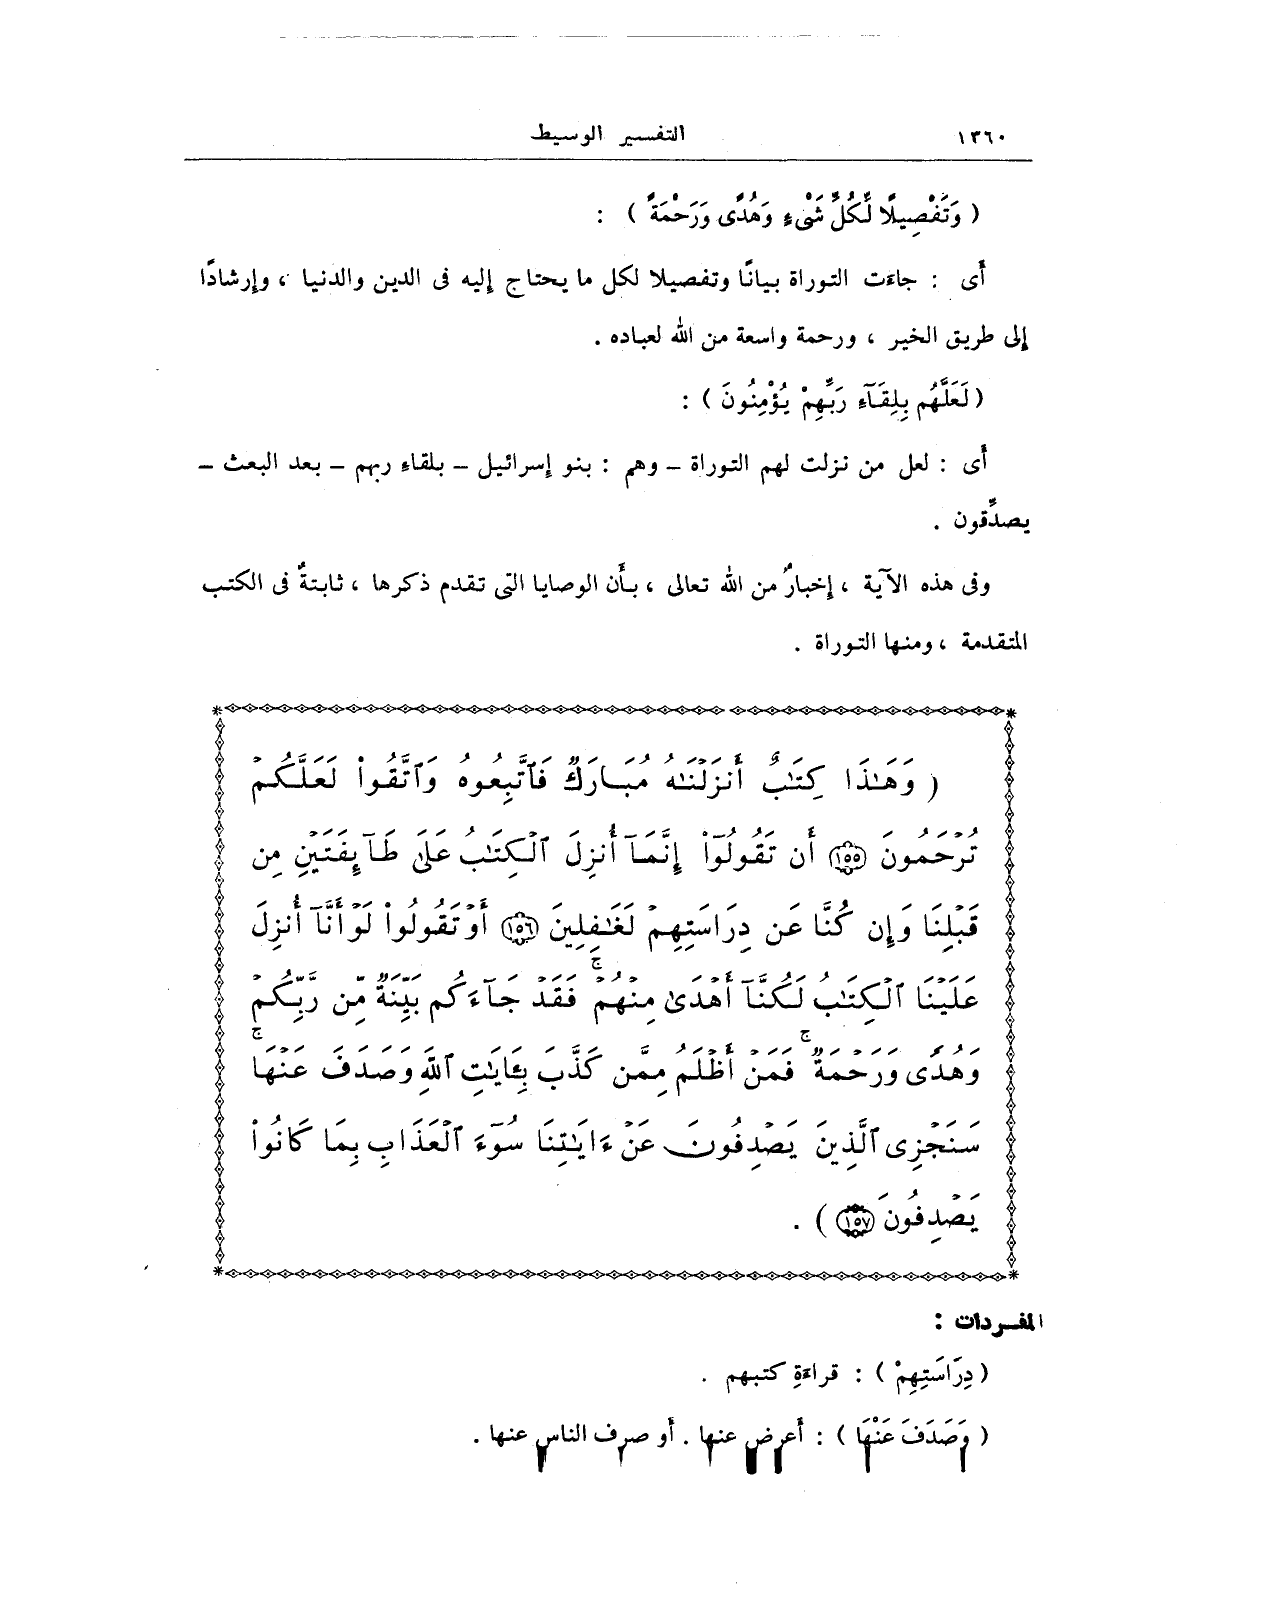 ١٣٦٠ التفسير الوسيط
( وَتَفْصِيلًا لِّكُلِّ شَىْءٍ وَهُدًى وَرَحْمَةً ) :
أى : جاءَت التوراة بيانًا وتفصيلا لكل ما يحتاج إليه فى الدين والدنيا ، وإرشادًا
إلى طريق الخير ، ورحمة واسعة من الله لعباده .
( لَعَلَّهُم بِلِقَآءِ رَبِّهِمْ يُؤْمِنُونَ ) :
أى : لعل من نزلت لهم التوراة – وهم : بنو إسرائيل – بلقاءِ ربهم – بعد البعث –
يصدِّقون .
وفى هذه الآية ، إخبارٌ من الله تعالى ، بأَن الوصايا التى تقدم ذكرها ، ثابتةٌ فى الكتب
المتقدمة ، ومنها التوراة .
( وَهَـٰذَا كِتَـٰبٌ أَنزَلْنَـٰهُ مُبَـارَكٌ فَٱتَّبِعُوهُ وَٱتَّقُواْ لَعَلَّكُمْ
تُرْحَمُونَ ١٥٥ أَن تَقُولُوٓاْ إِنَّمَآ أُنزِلَ ٱلْكِتَـٰبُ عَلَىٰ طَآئِفَتَيْنِ مِن
قَبْلِنَا وَإِن كُنَّا عَن دِرَاسَتِهِمْ لَغَـٰفِلِينَ ١٥٦ أَوْ تَقُولُواْ لَوْ أَنَّآ أُنزِلَ
عَلَيْنَا ٱلْكِتَـٰبُ لَكُنَّآ أَهْدَىٰ مِنْهُمْ ۚ فَقَدْ جَآءَكُم بَيِّنَةٌ مِّن رَّبِّكُمْ
وَهُدًى وَرَحْمَةٌ ۚ فَمَنْ أَظْلَمُ مِمَّن كَذَّبَ بِـَٔايَـٰتِ ٱللَّهِ وَصَدَفَ عَنْهَا ۗ
سَنَجْزِى ٱلَّذِينَ يَصْدِفُونَ عَنْ ءَايَـٰتِنَا سُوٓءَ ٱلْعَذَابِ بِمَا كَانُواْ
يَصْدِفُونَ ١٥٧ ) .
المفـردات :
( دِرَاسَتِهِمْ ) : قراءَةِ كتبهم .
( وَصَدَفَ عَنْهَا ) : أَعرض عنها . أَو صرف الناس عنها .